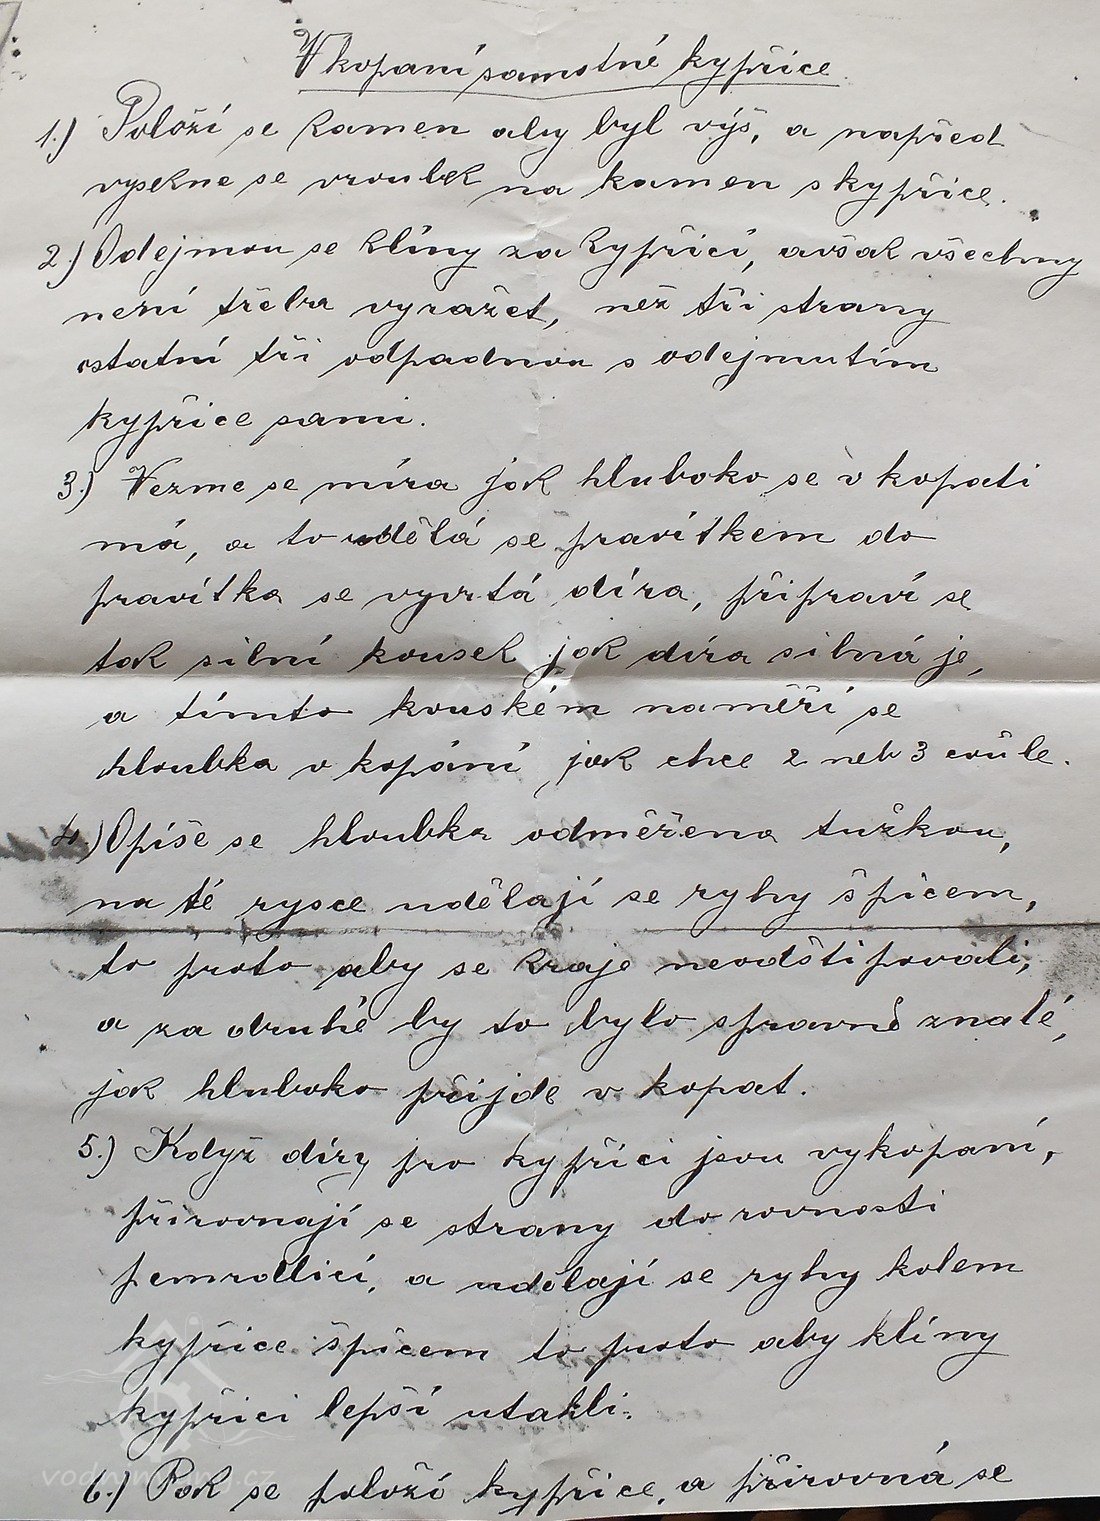 Vkopaní samotné kypřice.
1.) Položí se kamen aby byl výš, a napřed
vysekne se vroubek na kamen s kypřice.
2.) Odejmou se klíny za kypřicí, avšak všechny
není třeba vyražet, než tři strany
ostatní tři odpadnou s odejmutím
kypřice sami.
3.) Vezme se míra jak hluboko se v kopati
má, a to udělá se pravítkem do
pravítka se vyvrtá díra, připraví se
tak silní kousek jak díra silná je,
a tímto kouském naměří se
hloubka v kopání jak chce 2 neb 3 coule.
4.) Opíše se hloubka odměřena tužkou,
na té rysce udělají se ryhy špicem,
to proto aby se kraje neodštipovali,
a za druhé by to bylo spravně znalé,
jak hluboko přijde v kopat.
5.) Když díry pro kypřici jsou vykopaní,
přirovnají se strany do rovnosti
pemrdlicí, a udělají se ryhy kolem
kypřice špicem to proto aby klíny
kypřici lepší utahli.
6.) Pak se položí kypřice, a přirovná se
vodnimlyny.cz